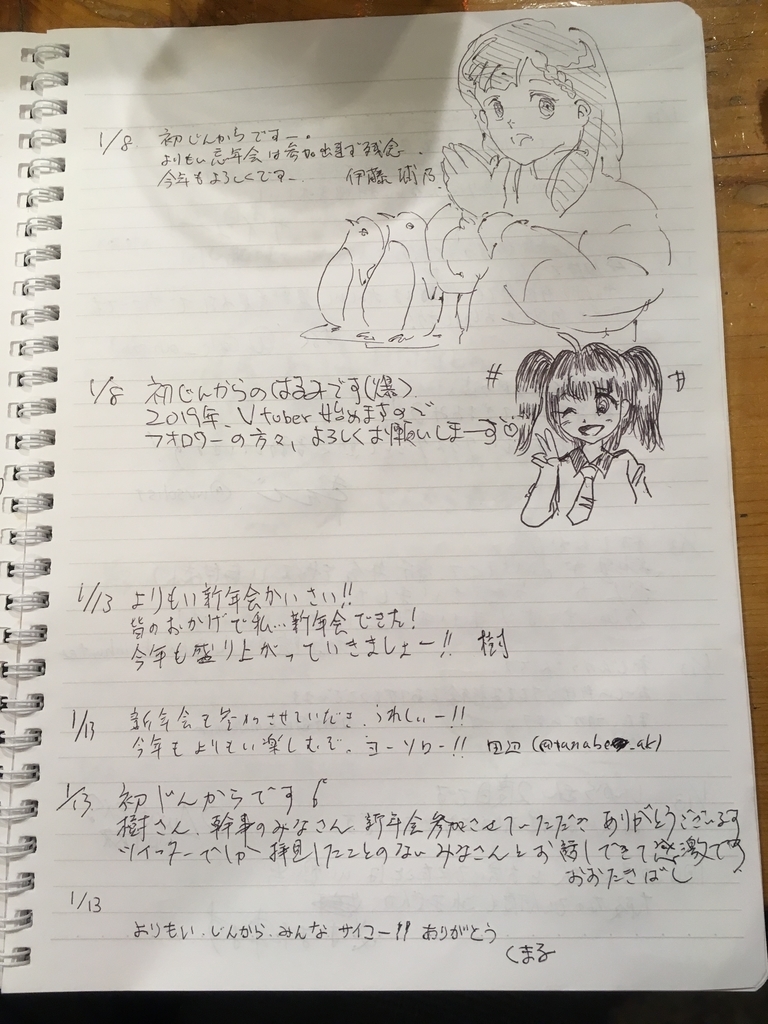 1/8 初じんからですー。
よりもい忘年会は参加出来ず残念。
今年もよろしくですー 伊藤
1/8 初じんからのはるみです(爆)
2019年、Vtuber始めますので
フォロワーの方々、よろしくお願いしまーす♡
# #
1/13 よりもい新年会かいさい!!
皆のおかげで私…新年会できた!
今年も盛り上がっていきましょー!! 樹
1/13 新年会も参加させていただき、うれしいー!!
今年もよりもい楽しむぞ。ヨーソロー!! 田辺
1/13 初じんからです
樹さん、幹事のみなさん 新年会参加させていただき ありがとうございます
ツイッターでしか拝見したことのないみなさんとお話しできて感激です
おおたきばし
1/13
よりもい、じんから、みんな サイコー!! ありがとう
くまる